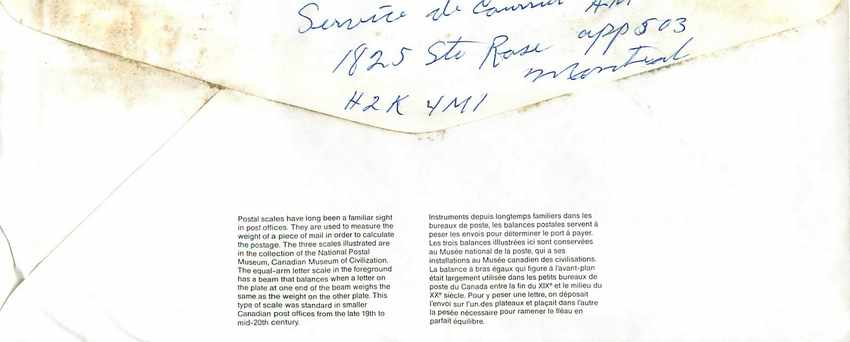 Service de Courrier AMI
1825 Ste Rose app 503
Montreal
H2K 4M1
Postal scales have long been a familiar sight
in post offices. They are used to measure the
weight of a piece of mail in order to calculate
the postage. The three scales illustrated are
in the collection of the National Postal
Museum, Canadian Museum of Civilization.
The equal-arm letter scale in the foreground
has a beam that balances when a letter on
the plate at one end of the beam weighs the
same as the weight on the other plate. This
type of scale was standard in smaller
Canadian post offices from the late 19th to
mid-20th century.
Instruments depuis longtemps familiers dans les
bureaux de poste, les balances postales servent à
peser les envois pour déterminer le port à payer.
Les trois balances illustrées ici sont conservées
au Musée national de la poste, qui a ses
installations au Musée canadien des civilisations.
La balance à bras égaux qui figure à l'avant-plan
était largement utilisée dans les petits bureaux de
poste du Canada entre la fin du XIXᵉ et le milieu du
XXᵉ siècle. Pour y peser une lettre, on déposait
l'envoi sur l'un des plateaux et plaçait dans l'autre
la pesée nécessaire pour ramener le fléau en
parfait équilibre.